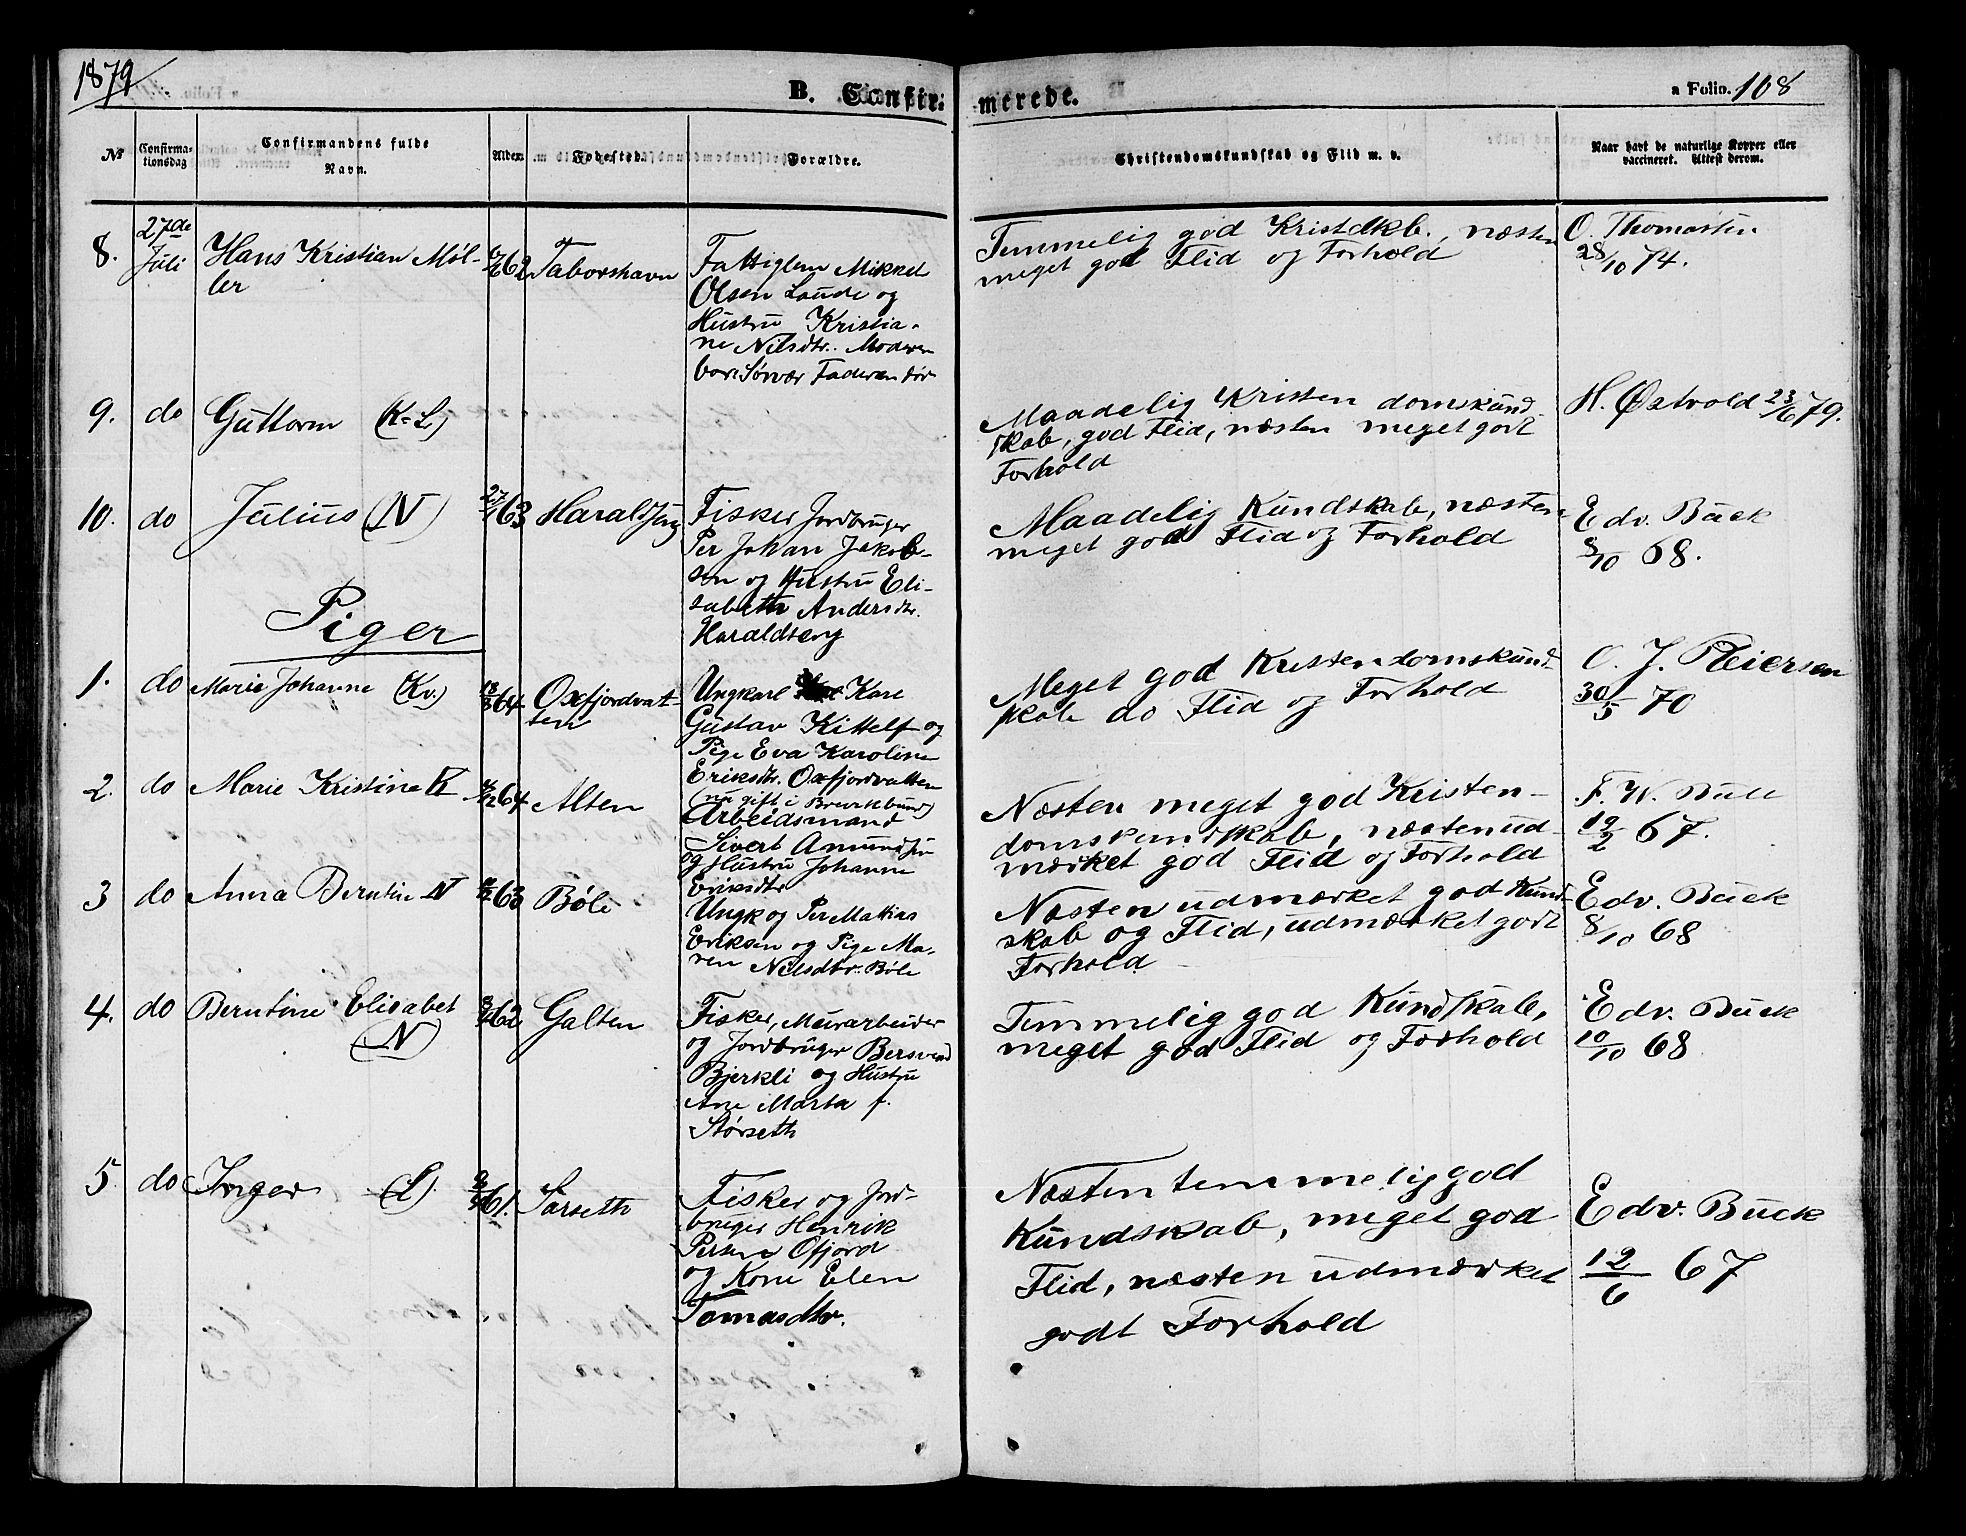 1879
B. Confir-
merede.
a Folio. 108
No
Confirma-
tionsdag
Confirmandens fulde
Navn.
Alder.
Fødested.
Forældre.
Christendomskundskab og Flid m. v.
Naar havt de naturlige Kopper eller
vaccineret. Attest derom.
8.
27de
Juli
Hans Kristian Møl-
ler
62
Taborshavn
Fattiglem Mikkel
Olsen Laude og
Hustru Kristia-
ne Nilsdtr. Moderen
bor: Sørvær Faderen dør
Temmelig god Kristdkb., næsten
meget god Flid og Forhold
O. Thomassen
28/10 74.
9.
do
Guttorm (K-L)
Maadelig Kristen domskund-
skab, god Flid, næsten meget godt
Forhold
H. Østvold 23/6 79.
10.
do
Julius (N)
63
Haraldseng
Fisker Jordbruger
Per Johan Jakob-
sen og Hustru Eli-
sabeth Andersdtr.
Haraldseng
Maadelig Kundskab, næsten
meget god Flid og Forhold
Edv. Buck
8/10 68.
Piger
1.
do
Marie Johanne (Kv.)
64
Oxfjordvat-
ten
Ungkarl Kare
Gustav Kittelf og
Pige Eva Karoline
Eriksdtr. Oxfjordvatten
(nu gift i )
Meget god Kristendomskund-
skab do Flid og Forhold
30/5 70
2.
do
Marie Kristine K
64
Alten
Arbeidsmand
Sivert Amundsen
og Hustru Johanne
Eriksdtr
Næsten meget god Kristen-
domskundskab, næsten ud-
mærket god Flid og Forhold
F. W. Bull
19/2 67.
3
do
Anna Berntine N
63
Bøle
Ungk og Per Mathias
Eriksen og Pige Ma-
ren Nelsdtr. Bøle
Næsten udmærket god Kund-
skab og Flid, udmærket godt
Forhold
Edv. Buck
8/10 68
4.
do
Berntine Elisabet
(N)
62
Galten
Fisker, Murarbeider
og Jordbruger Bersvend
Bjerkli og Hustru
Ane Marta f.
Størseth
Temmelig god Kundskab,
meget god Flid og Forhold
Edv. Buck
10/10 68
5.
do
Inger (L).
61.
Sørseth
Fisker og Jord-
bruger Henrik
Persen Ofjord
og Kone Elen
Tomasdtr.
Næsten temmelig god
Kundskab, meget god
Flid, næsten udmærket
godt Forhold
Edv. Buck
12/6 67